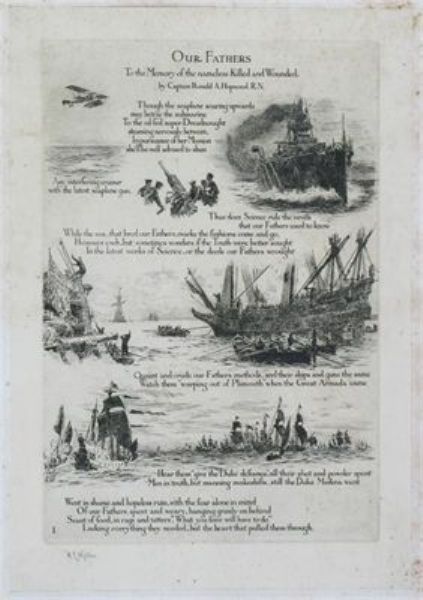 OUR FATHERS
To the Memory of the nameless Killed and Wounded.
by Captain Ronald A. Hopwood, R.N.
Though the seaplane soaring upwards
may betray the submarine
To the oil-fed super-Dreadnought
steaming nervously between,
In pursuance of her Mission
she'll be well advised to shun
Any interfering cruiser
with the latest seaplane gun.
Thus does Science rule the
that our Fathers used to know
While the sea, that bred our Fathers, marks the fashions come and go,
but sometimes wonders if the Truth were better sought
In the latest works of Science, or the deeds our Fathers wrought
Quaint and crude our Fathers' methods, and their ships and guns the same
Watch them warping out of Plymouth when the Great Armada came
Hear them give the Duke defiance, all their shot and powder spent
Men in truth, but manning makeshifts, still the Duke Medina went
West in shame and hopeless ruin, with the fear alone in mind
Of our Fathers, spent and weary, hanging grimly on behind
Scant of food, in rags and tatters, "What you have will have to do"
Lacking everything they needed, but the heart that pulled them through.
1